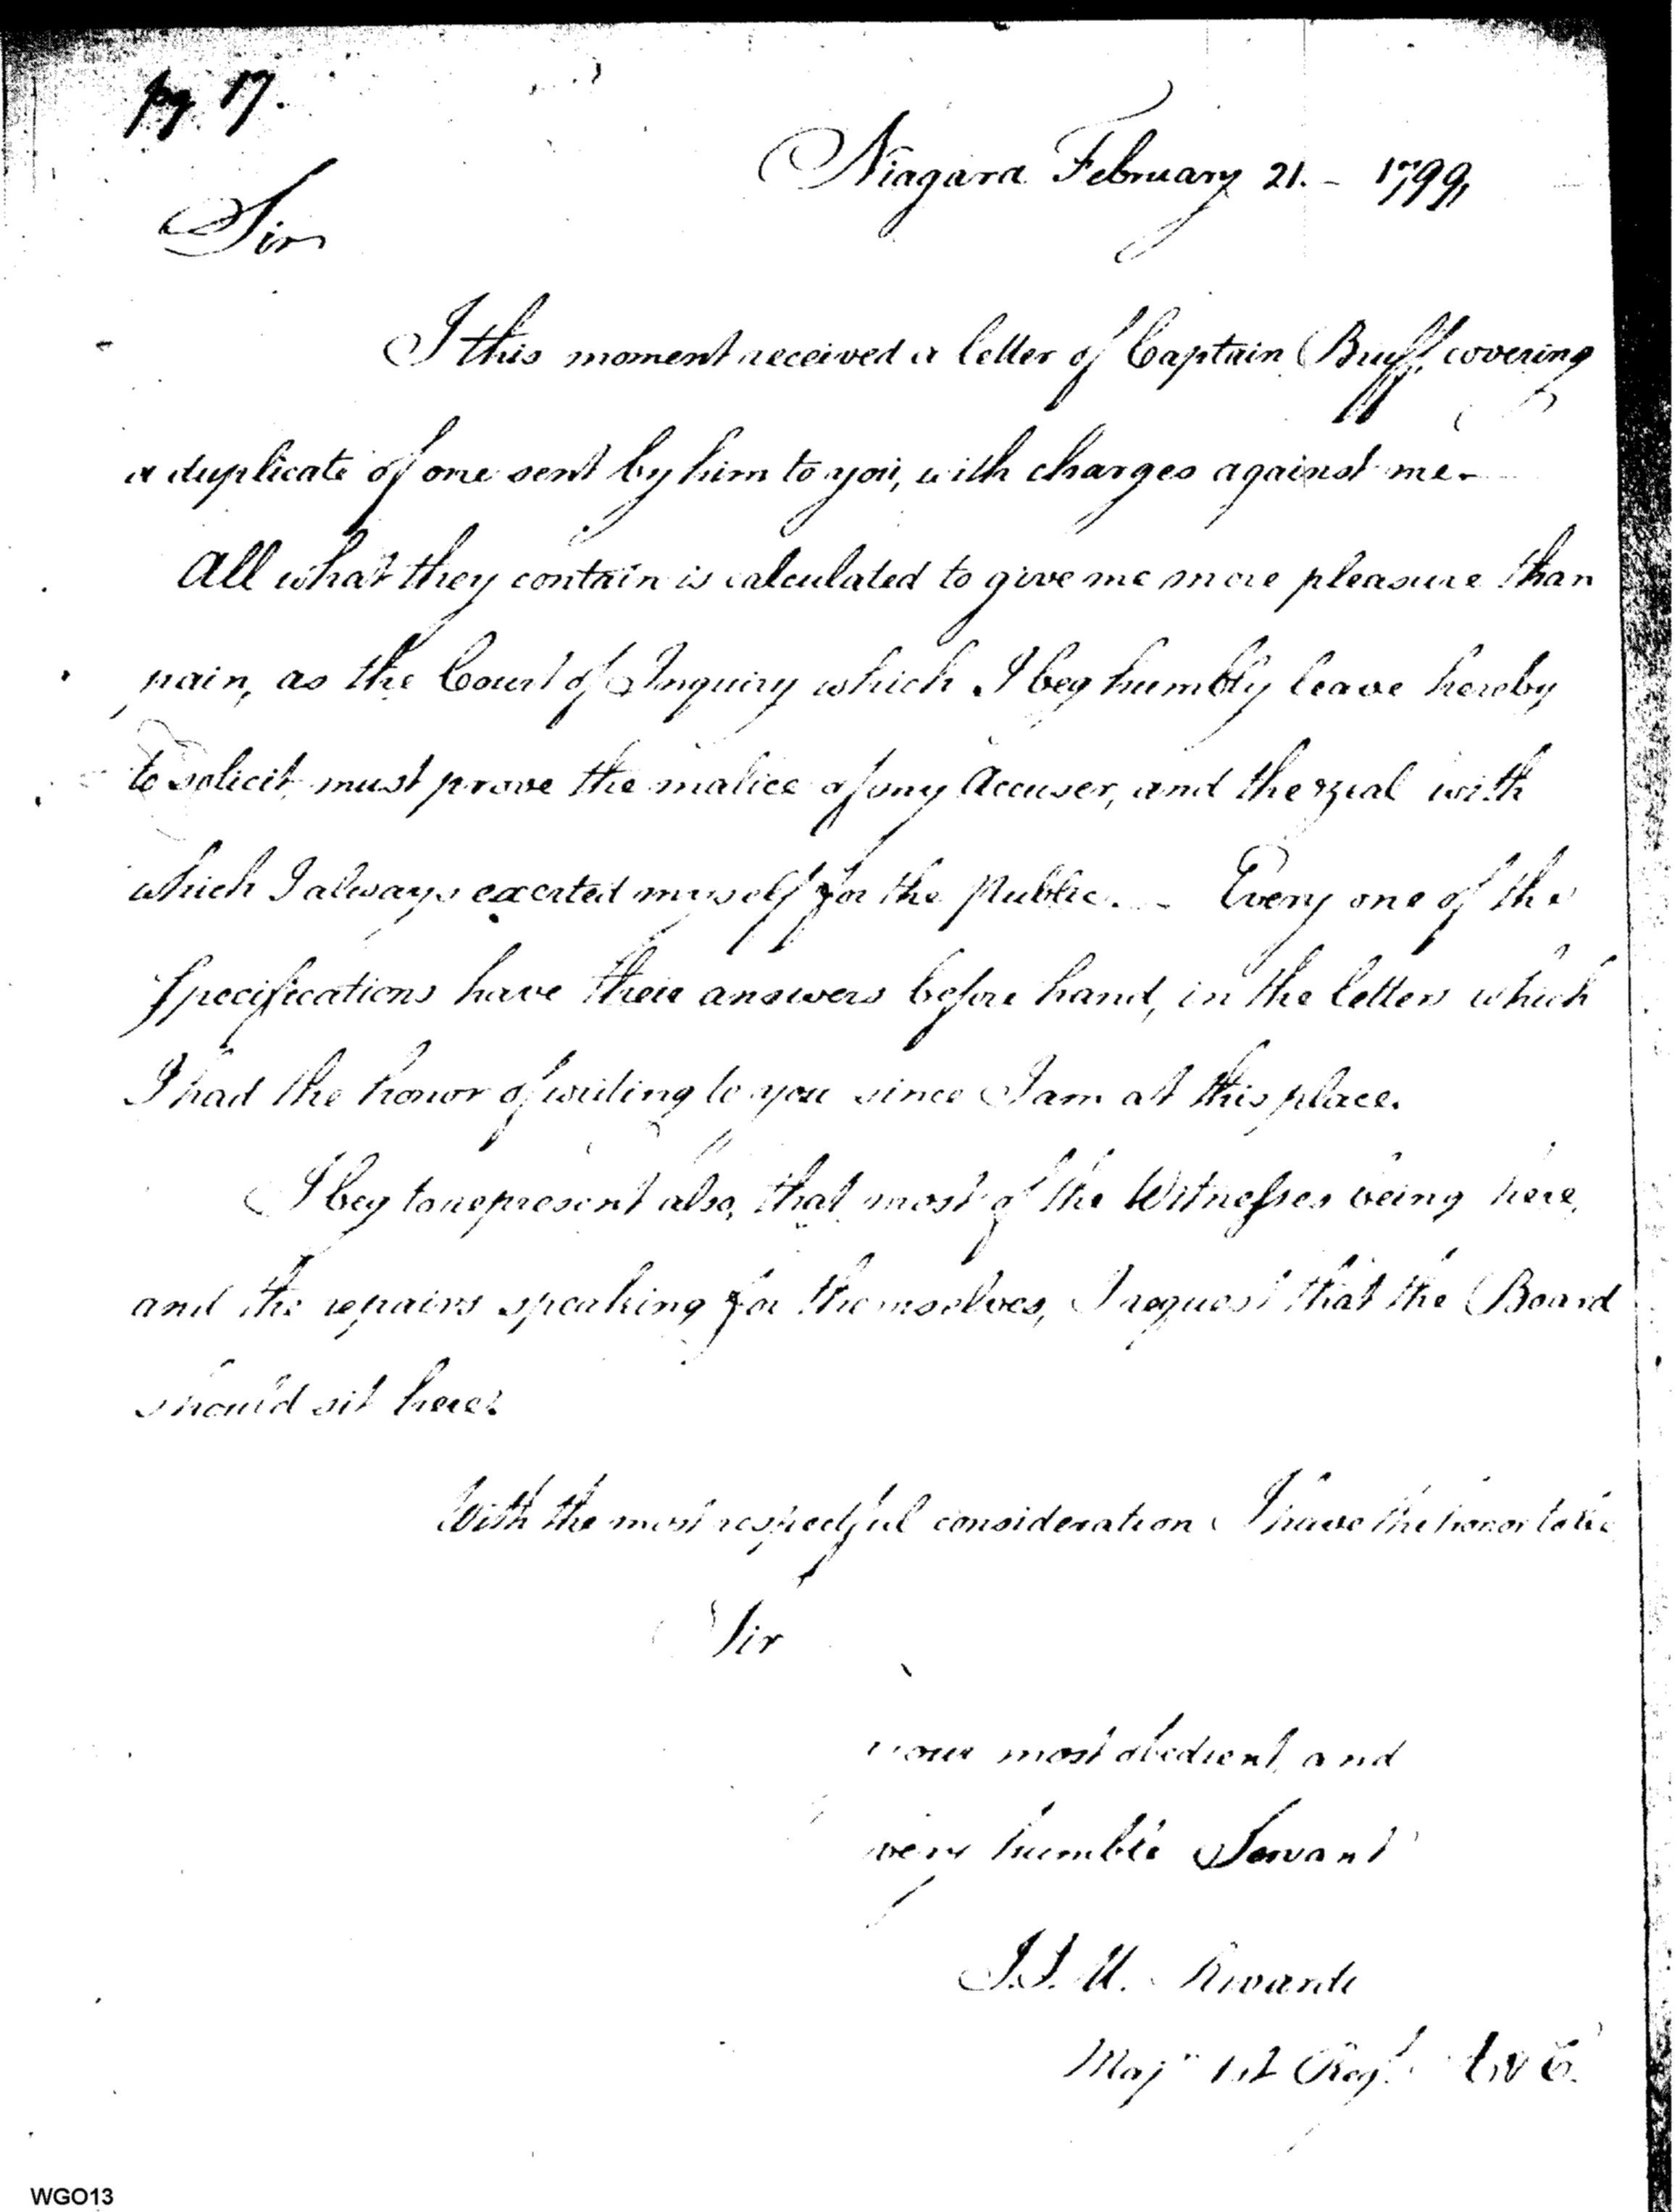 pg. 17.
Niagara February 21. - 1799,
Sir
I this moment received a letter of Captain Bruff, covering
a duplicate of one sent by him to you, with charges against me.-
All what they contain is calculated to give me more pleasure than
pain, as the Court of Inquiry which I beg humbly leave hereby
to solicit, must prove the malice of my Accuser, and the zeal with
which I always exerted myself for the Public. - Every one of the
Specifications have their answers before hand, in the letters which
I had the honor of writing to you since I am at this place.
I beg to represent also, that most of the Witnesses being here,
and the repairs speaking for themselves, I request that the Board
should sit here.
With the most respectful consideration I have the honor to be
Sir
your most obedient and
very humble Servant
J.J.U. Rivardi
Majr 1st Regt. A & E.
WGO13